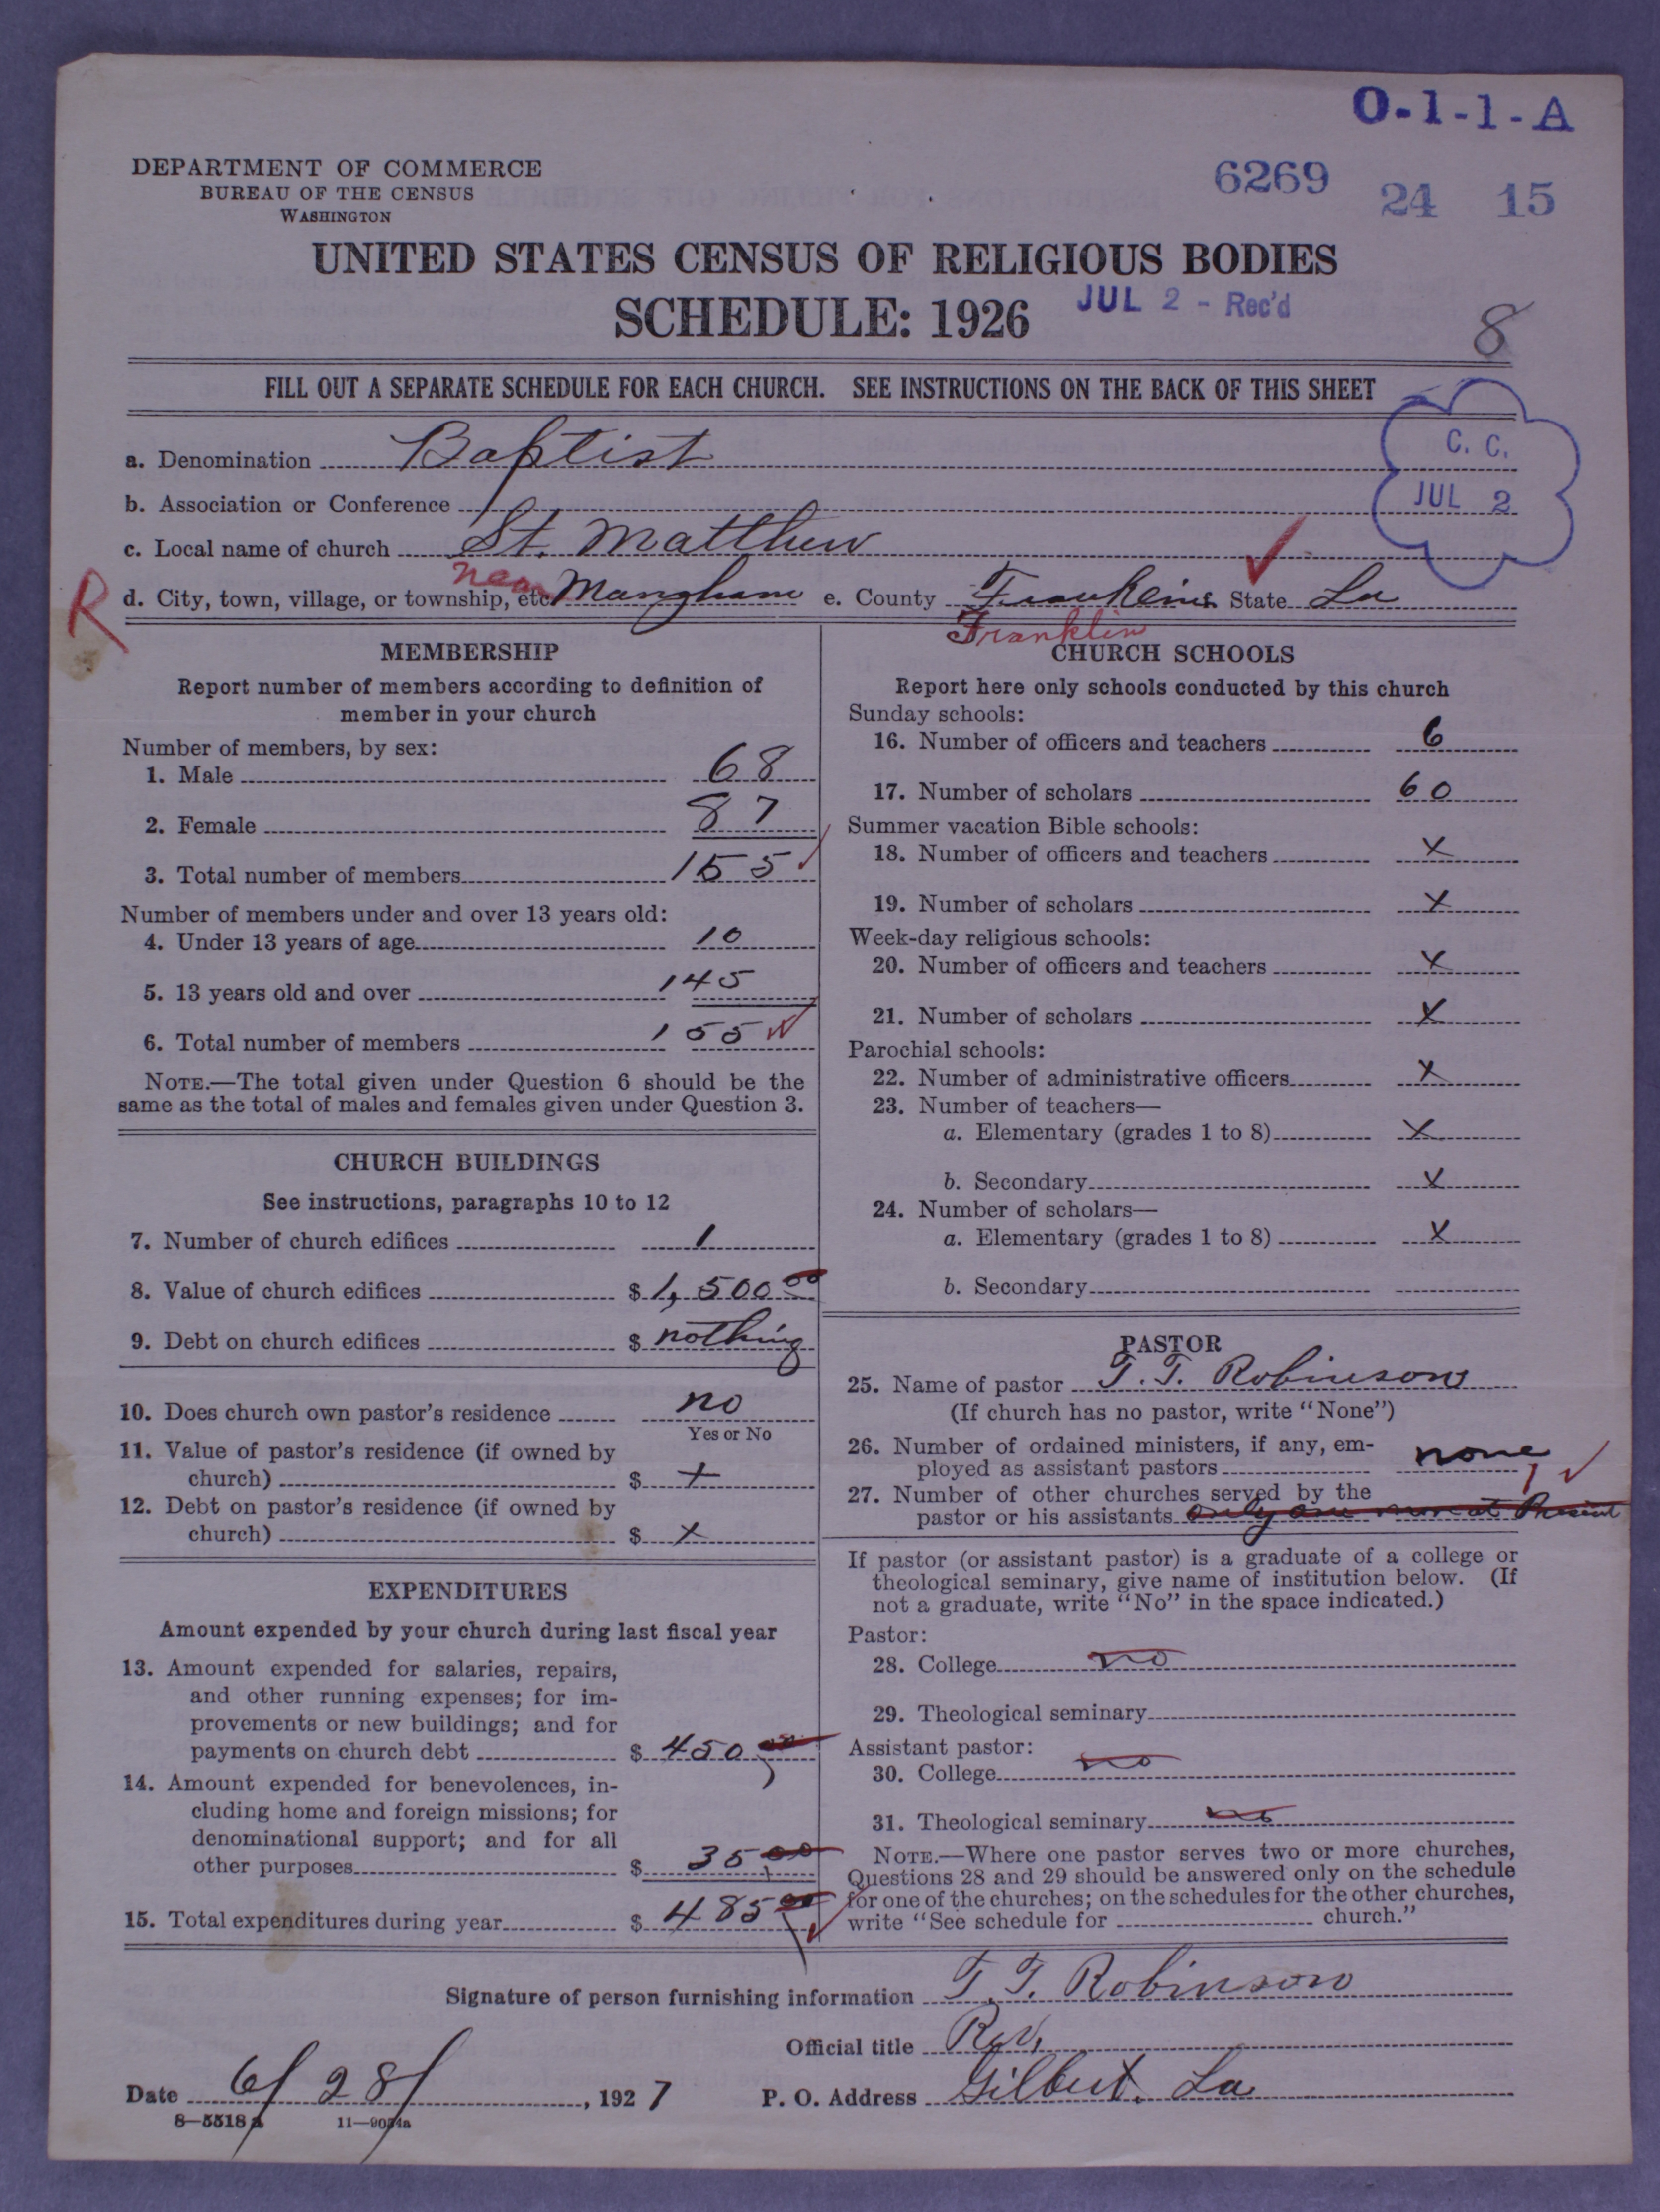 O-1-1-A
DEPARTMENT OF COMMERCE
BUREAU OF THE CENSUS
WASHINGTON
6269 24 15
UNITED STATES CENSUS OF RELIGIOUS BODIES
SCHEDULE: 1926
JUL 2 - Rec'd
8
FILL OUT A SEPARATE SCHEDULE FOR EACH CHURCH. SEE INSTRUCTIONS ON THE BACK OF THIS SHEET
C. C.
JUL 2
a. Denomination Baptist
b. Association or Conference
c. Local name of church St. Matthew
R d. City, town, village, or township, etc. near Mangham e. County Franklin State La
Franklin
MEMBERSHIP
Report number of members according to definition of
member in your church
Number of members, by sex:
1. Male 68
2. Female 87
3. Total number of members 155
Number of members under and over 13 years old:
4. Under 13 years of age 10
5. 13 years old and over 145
6. Total number of members 155
NOTE.—The total given under Question 6 should be the
same as the total of males and females given under Question 3.
CHURCH BUILDINGS
See instructions, paragraphs 10 to 12
7. Number of church edifices 1
8. Value of church edifices $ 1,500 00
9. Debt on church edifices $ nothing
10. Does church own pastor's residence no
Yes or No
11. Value of pastor's residence (if owned by
church) $ x
12. Debt on pastor's residence (if owned by
church) $ x
EXPENDITURES
Amount expended by your church during last fiscal year
13. Amount expended for salaries, repairs,
and other running expenses; for im-
provements or new buildings; and for
payments on church debt $ 450 00
14. Amount expended for benevolences, in-
cluding home and foreign missions; for
denominational support; and for all
other purposes $ 35 00
15. Total expenditures during year $ 485 00
CHURCH SCHOOLS
Report here only schools conducted by this church
Sunday schools:
16. Number of officers and teachers 6
17. Number of scholars 60
Summer vacation Bible schools:
18. Number of officers and teachers x
19. Number of scholars x
Week-day religious schools:
20. Number of officers and teachers x
21. Number of scholars x
Parochial schools:
22. Number of administrative officers x
23. Number of teachers—
a. Elementary (grades 1 to 8) x
b. Secondary x
24. Number of scholars—
a. Elementary (grades 1 to 8) x
b. Secondary
PASTOR
25. Name of pastor T. T. Robinson
(If church has no pastor, write "None")
26. Number of ordained ministers, if any, em-
ployed as assistant pastors none
27. Number of other churches served by the 1
pastor or his assistants only one more at Present
If pastor (or assistant pastor) is a graduate of a college or
theological seminary, give name of institution below. (If
not a graduate, write "No" in the space indicated.)
Pastor:
28. College no
29. Theological seminary
Assistant pastor:
30. College no
31. Theological seminary no
NOTE.—Where one pastor serves two or more churches,
Questions 28 and 29 should be answered only on the schedule
for one of the churches; on the schedules for the other churches,
write "See schedule for church."
Signature of person furnishing information T. T. Robinson
Official title Rev.
Date 6/28/, 1927 P. O. Address Gilbert. La
8-5518 a 11-9034a